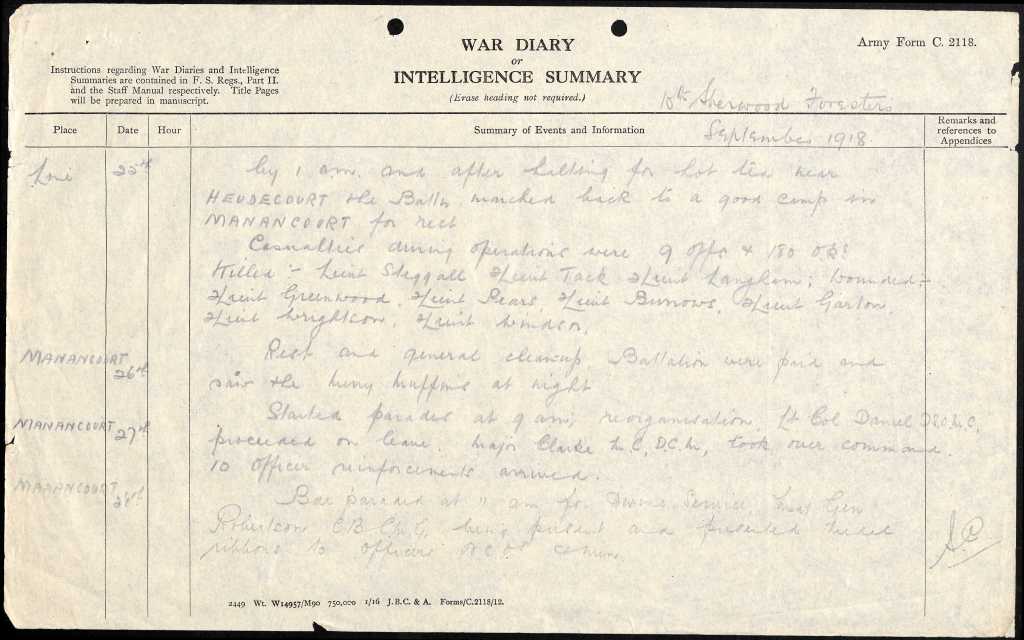 WAR DIARY
or
INTELLIGENCE SUMMARY
(Erase heading not required.)
Army Form C. 2118.
Instructions regarding War Diaries and Intelligence
Summaries are contained in F. S. Regs., Part II.
and the Staff Manual respectively. Title Pages
will be prepared in manuscript.
10th Sherwood Foresters
September 1918
Place Date Hour Summary of Events and Information Remarks and
references to
Appendices
25th by 1 am. and after halting for hot tea near
HEUDECOURT the Battn marched back to a good camp in
MANANCOURT for rest
Casualties during operations were 9 Offs & 180 O.Rs
Killed :- Lieut Steggall 2/Lieut Tack 2/Lieut Langham; Wounded:-
2/Lieut Greenwood, 2/Lieut Pears, 2/Lieut Burrows, 2/Lieut Garton,
2/Lieut Wrightson, 2/Lieut Windsor.
MANANCOURT 26th Rest and general cleanup. Battalion were paid and
saw the at night
MANANCOURT 27th Started parades at 9 am; reorganisation. Lt Col Daniel D.S.O. M.C.
proceeded on leave. Major Clarke M.C, D.C.M, took over command.
10 Officer reinforcements arrived.
MANANCOURT 28th paraded at 11 am for Divine Service Gen
Robertson C.B. C.M.G. being present and presented medal
ribbons to officers N.C.Os & men
2449 Wt. W14957/M90 750,000 1/16 J.B.C. & A. Forms/C.2118/12.